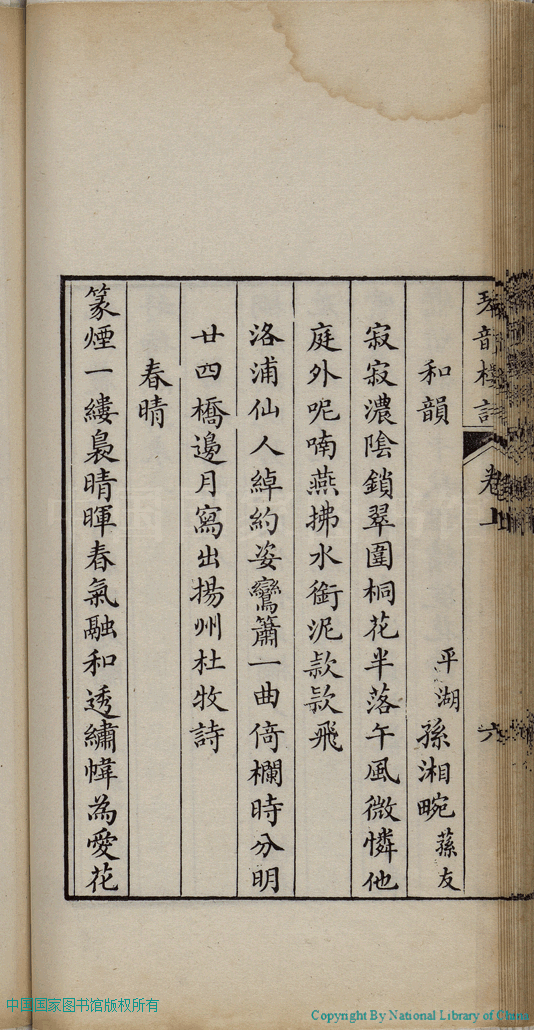 和韻
平湖 孫湘畹 蓀友
寂寂濃陰鎖翠圍桐花半落午風微憐他
庭外呢喃燕拂水銜泥款款飛
洛浦仙人綽約姿鸞簫一曲倚欄時分明
廿四橋邊月寫出揚州杜牧詩
春晴
篆煙一縷裊晴暉春氣融和透繡幃為愛花
卷上
六
中国国家图书馆版权所有
Copyright By National Library of China